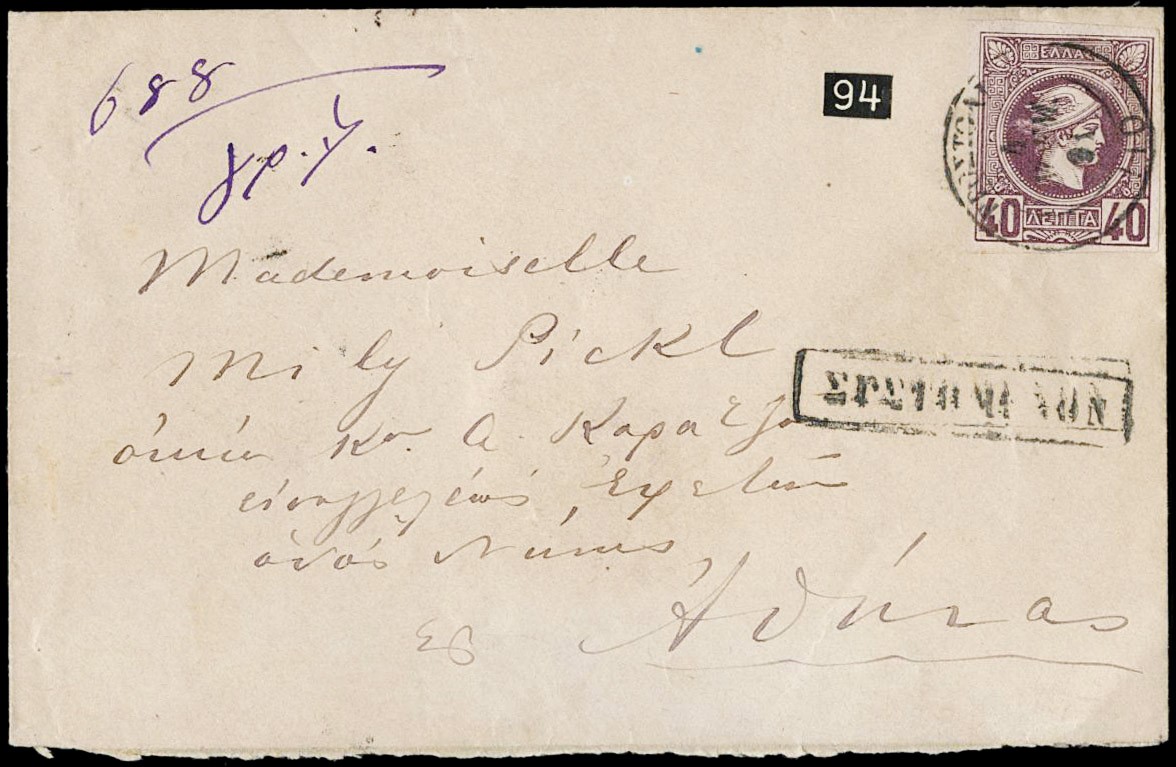 688
γρ. 7.
94
ΕΛΛΑΣ
40 ΛΕΠΤΑ 40
Mademoiselle
Mily Pickl
κου Α. Καρατζα
εἰσαγγελέως Ἐφετῶν
ὁδός
ΣΥΣΤΗΜΕΝΟΝ
Εἰς Ἀθήνας